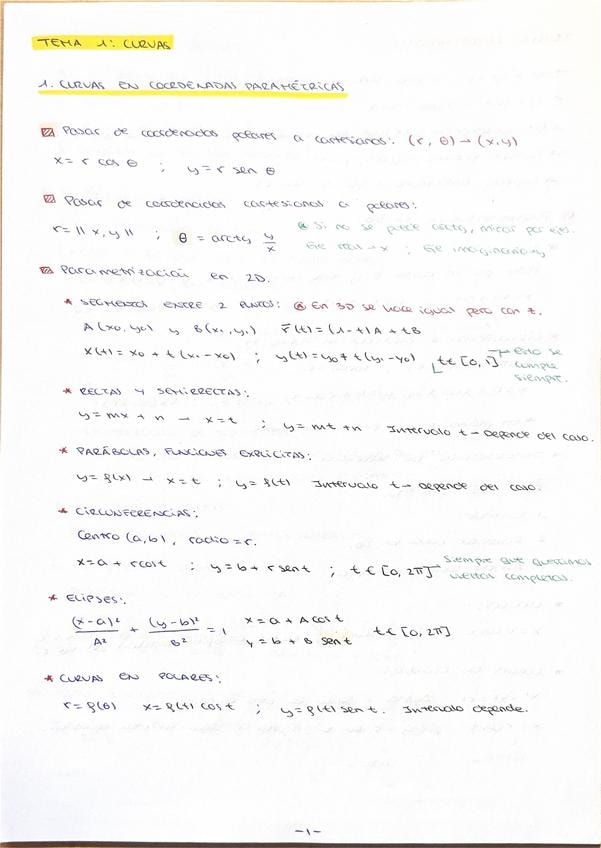 TEMA 1: CURVAS
1. CURVAS EN COORDENADAS PARAMÉTRICAS
Pasar de coordenadas polares a cartesianas: (r, θ) → (x, y)
x = r cos θ ; y = r sen θ
Pasar de coordenadas cartesianas a polares:
r = || x, y || ; θ = arctg y/x Si no se puede arctg, mirar por ejes.
Eje real → x ; Eje imaginario → y
Parametrización en 2D.
* SEGMENTOS ENTRE 2 PUNTOS: En 3D se hace igual pero con z.
A (x₀, y₀) y B (x₁, y₁) r̄(t) = (1-t)A + tB
x(t) = x₀ + t (x₁ - x₀) ; y(t) = y₀ + t (y₁ - y₀) t ∈ [0, 1] → Esto se cumple siempre.
* RECTAS Y SEMIRRECTAS:
y = mx + n → x = t ; y = mt + n Intervalo t → Depende del caso.
* PARÁBOLAS, FUNCIONES EXPLÍCITAS:
y = f(x) → x = t ; y = f(t) Intervalo t → Depende del caso.
* CIRCUNFERENCIAS:
Centro (a, b), radio = r.
x = a + r cos t ; y = b + r sen t ; t ∈ [0, 2π] → Siempre que queramos vueltas completas.
* ELIPSES:
(x-a)²/A² + (y-b)²/B² = 1 x = a + A cos t
y = b + B sen t t ∈ [0, 2π]
* CURVAS EN POLARES:
r = f(θ) x = f(t) cos t ; y = f(t) sen t. Intervalo depende.
-1-